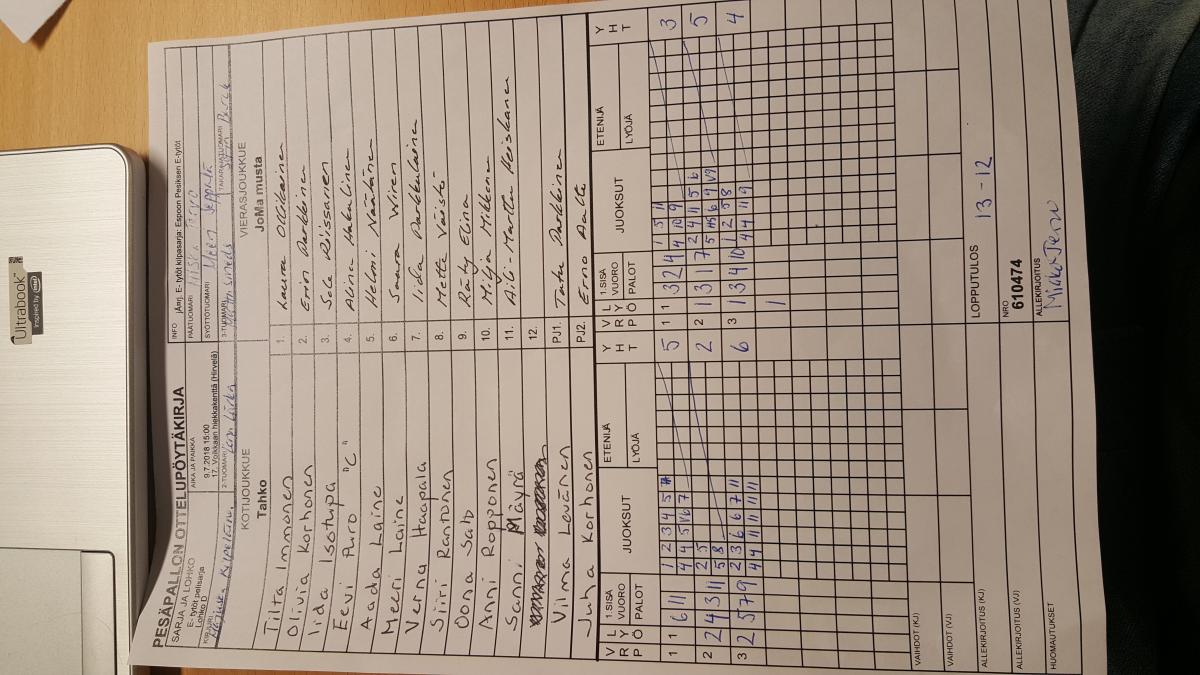 Ultrabook™
Inspired by intel
PESÄPALLON OTTELUPÖYTÄKIRJA
SARJA JA LOHKO
E- tytöt pelisarja
Lohko D
AIKA JA PAIKKA
9.7.2018 15:00
17. Voikkaan hiekkakenttä (Hirvelä)
INFO
jÄrrj. E- tytöt kilpasarja: Espoon Pesiksen E-tytöt
PÄÄTUOMARI
SYÖTTÖTUOMARI
KIRJURI
2-TUOMARI
3-TUOMARI
TAKARAJATUOMARI
KOTIJOUKKUE
Tahko
VIERASJOUKKUE
JoMa musta
Tilta Immonen 1. Laura Ollikainen
Olivia Korhonen 2. Erin Parkkinen
Iida Isotupa 3. Sole Riissanen
Eevi Puro "C" 4. Alina Hakulinen
Aada Laine 5. Helmi Näätänen
Meeri Laine 6. Saara Wiren
Verna Haapala 7. Iida Parkkulainen
Siiri Rantonen 8. Mette Väistö
Oona Salo 9. Räty Elina
Anni Ropponen 10. Milja Mikkone
Sanni Mäyrä 11. Aili-Martta Heiskane
12.
Vilma Levänen PJ1. Tatu Parkkinen
Juha Korhonen PJ2. Erno Aalto
V R P L Y Ö 1.SISÄ VUORO PALOT JUOKSUT ETENIJÄ LYÖJÄ Y H T V R P L Y Ö 1.SISÄ VUORO PALOT JUOKSUT ETENIJÄ LYÖJÄ Y H T
1 1 6 11 1 2 3 4 5 5 1 1 3 2 4 1 5 11 3
4 4 5 6 7 4 10 9
2 2 4 3 11 2 5 2 2 1 3 1 7 2 4 11 5 6 5
5 8 5 6 9
3 2 5 7 9 2 3 6 6 7 11 6 3 1 3 4 10 1 2 5 8 4
4 4 11 11 11 11 4 4 11 9
1
VAIHDOT (KJ)
VAIHDOT (VJ)
LOPPUTULOS
13 - 12
ALLEKIRJOITUS (KJ)
NRO
610474
ALLEKIRJOITUS (VJ)
ALLEKIRJOITUS
HUOMAUTUKSET